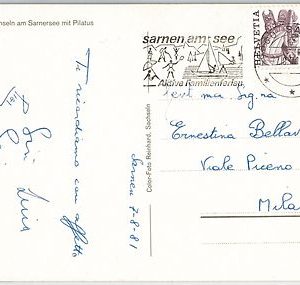 hseln am Sarnersee mit Pilatus
sarnen am see
Aktive Familienferien
HELVETIA
Ti ricordiamo con affetto
Luisa
Sarnen 7-8-81
Color-Foto Reinhard, Sachseln
Gent.ma Sig.na
Ernestina Bellav
Viale Piceno
Mila